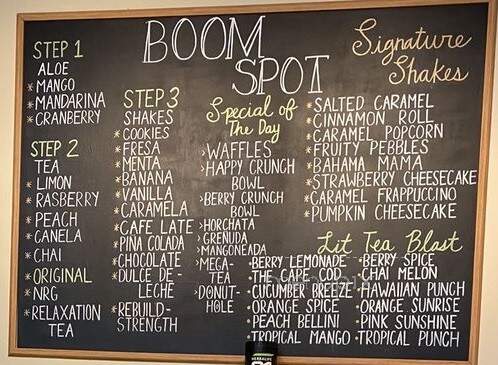 BOOM
SPOT
STEP 1
ALOE
*MANGO
*MANDARINA
*CRANBERRY
STEP 2
TEA
*LIMON
*RASBERRY
*PEACH
*CANELA
*CHAI
*ORIGINAL
*NRG
*RELAXATION
TEA
STEP 3
SHAKES
*COOKIES
*FRESA
*MENTA
*BANANA
*VANILLA
*CARAMELA
*CAFE LATE
*PINA COLADA
*CHOCOLATE
*DULCE DE-
LECHE
*REBUILD-
STRENGTH
Special of
The Day
>WAFFLES
>HAPPY CRUNCH
BOWL
>BERRY CRUNCH
BOWL
>HORCHATA
>GRENUDA
>MANGONEADA
>MEGA-
TEA
>DONUT-
HOLE
Signature
Shakes
*SALTED CARAMEL
*CINNAMON ROLL
*CARAMEL POPCORN
*FRUITY PEBBLES
*BAHAMA MAMA
*STRAWBERRY CHEESECAKE
*CARAMEL FRAPPUCCINO
*PUMPKIN CHEESECAKE
Lit Tea Blast
•BERRY LEMONADE
•THE CAPE COD
•CUCUMBER BREEZE
•ORANGE SPICE
•PEACH BELLINI
•TROPICAL MANGO
•BERRY SPICE
•CHAI MELON
•HAWAIIAN PUNCH
•ORANGE SUNRISE
•PINK SUNSHINE
•TROPICAL PUNCH
HERBALIFE